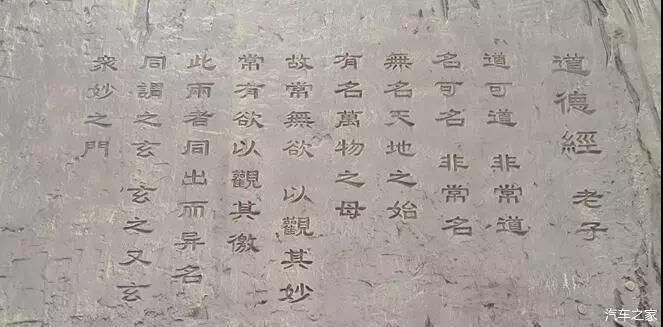 道德經 老子
道可道 非常道
名可名 非常名
無名天地之始
有名萬物之母
故常無欲 以觀其妙
常有欲以觀其徼
此兩者同出而异名
同謂之玄 玄之又玄
衆妙之門
汽车之家